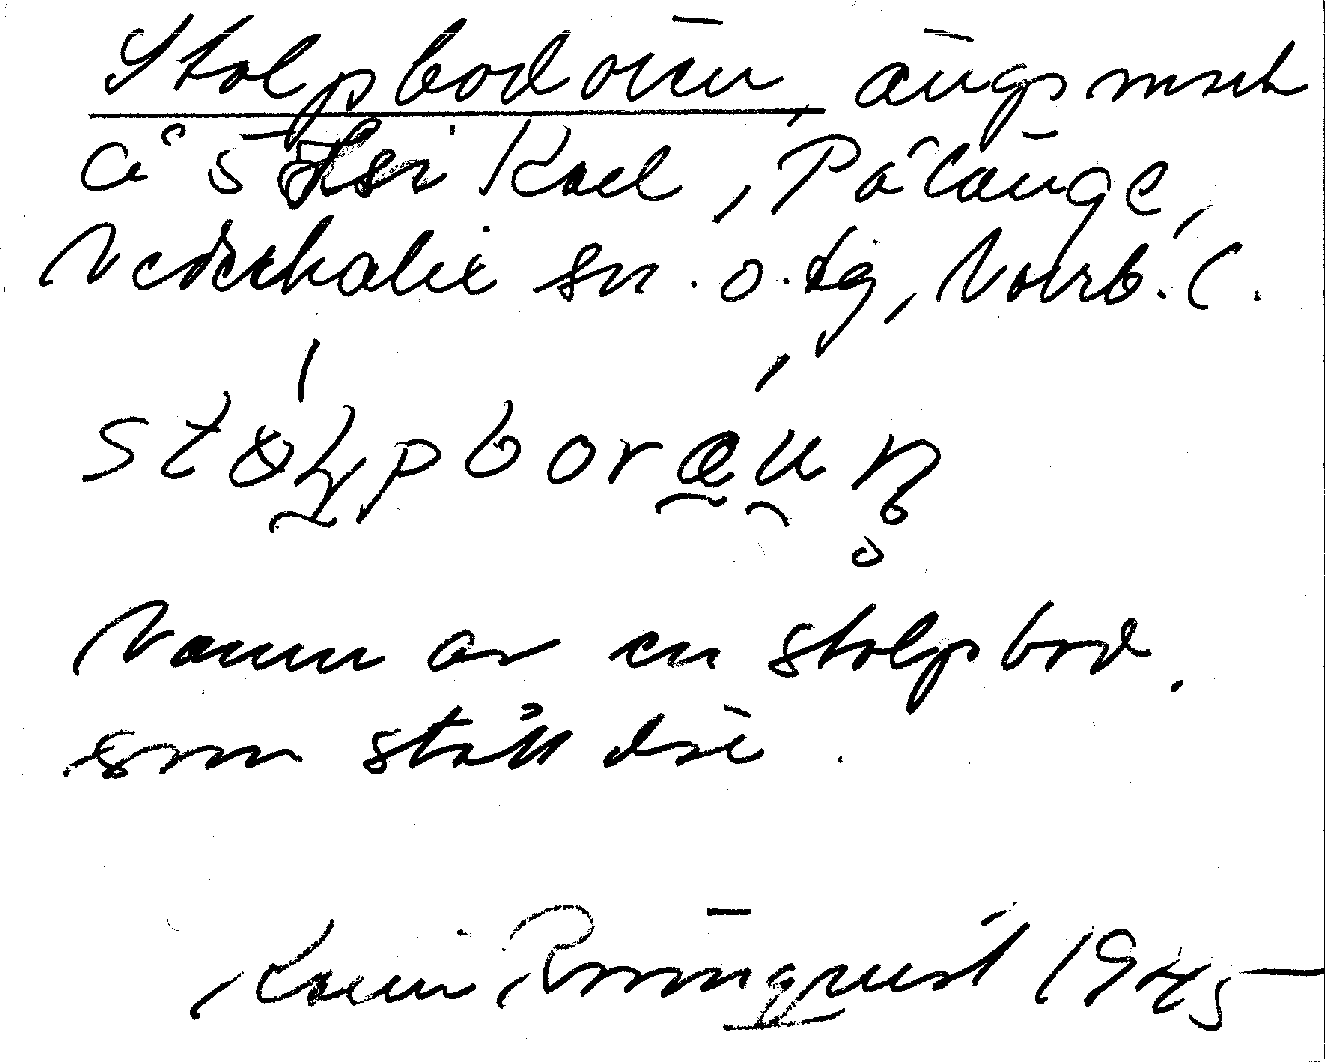 Stolpbodören, ängsmark
å 5 Karl, Pålänge,
Nederkalix sn. o. tg, Norrb. l.
Namn av en stolpbod,
som stått där.
Karin Rönnqvist 1945